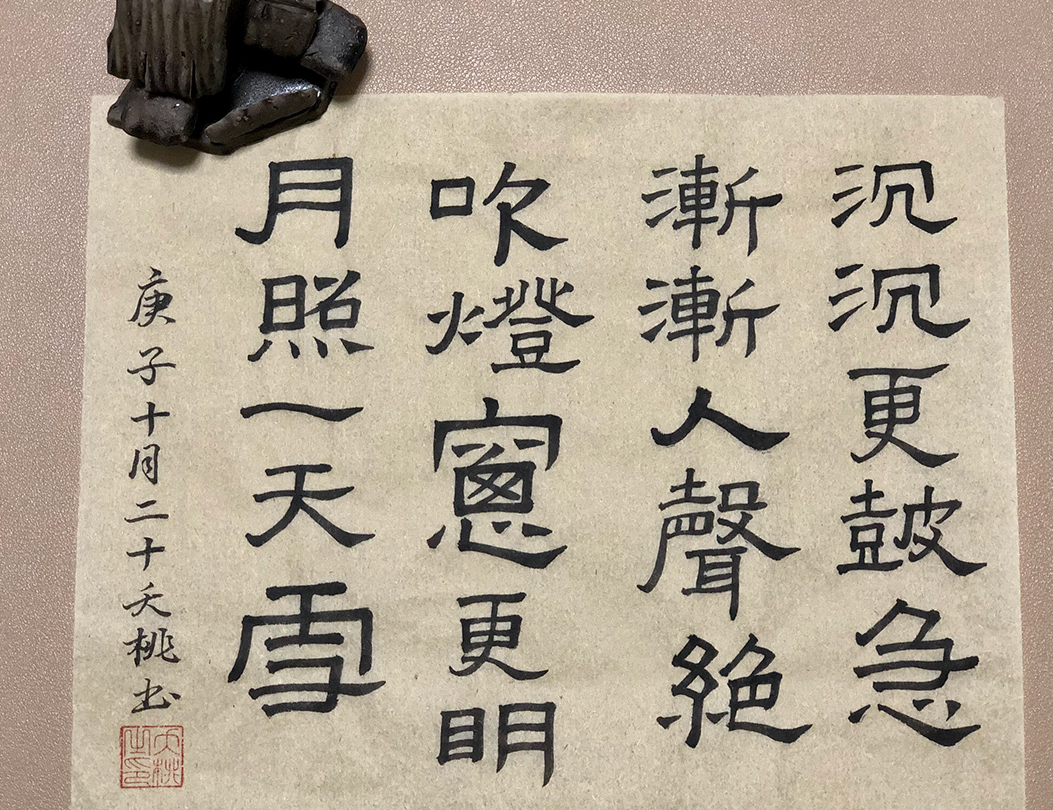 沉沉更鼓急
漸漸人聲絕
吹燈窗更明
月照一天雪
庚子十月二十夭桃书
夭桃之印